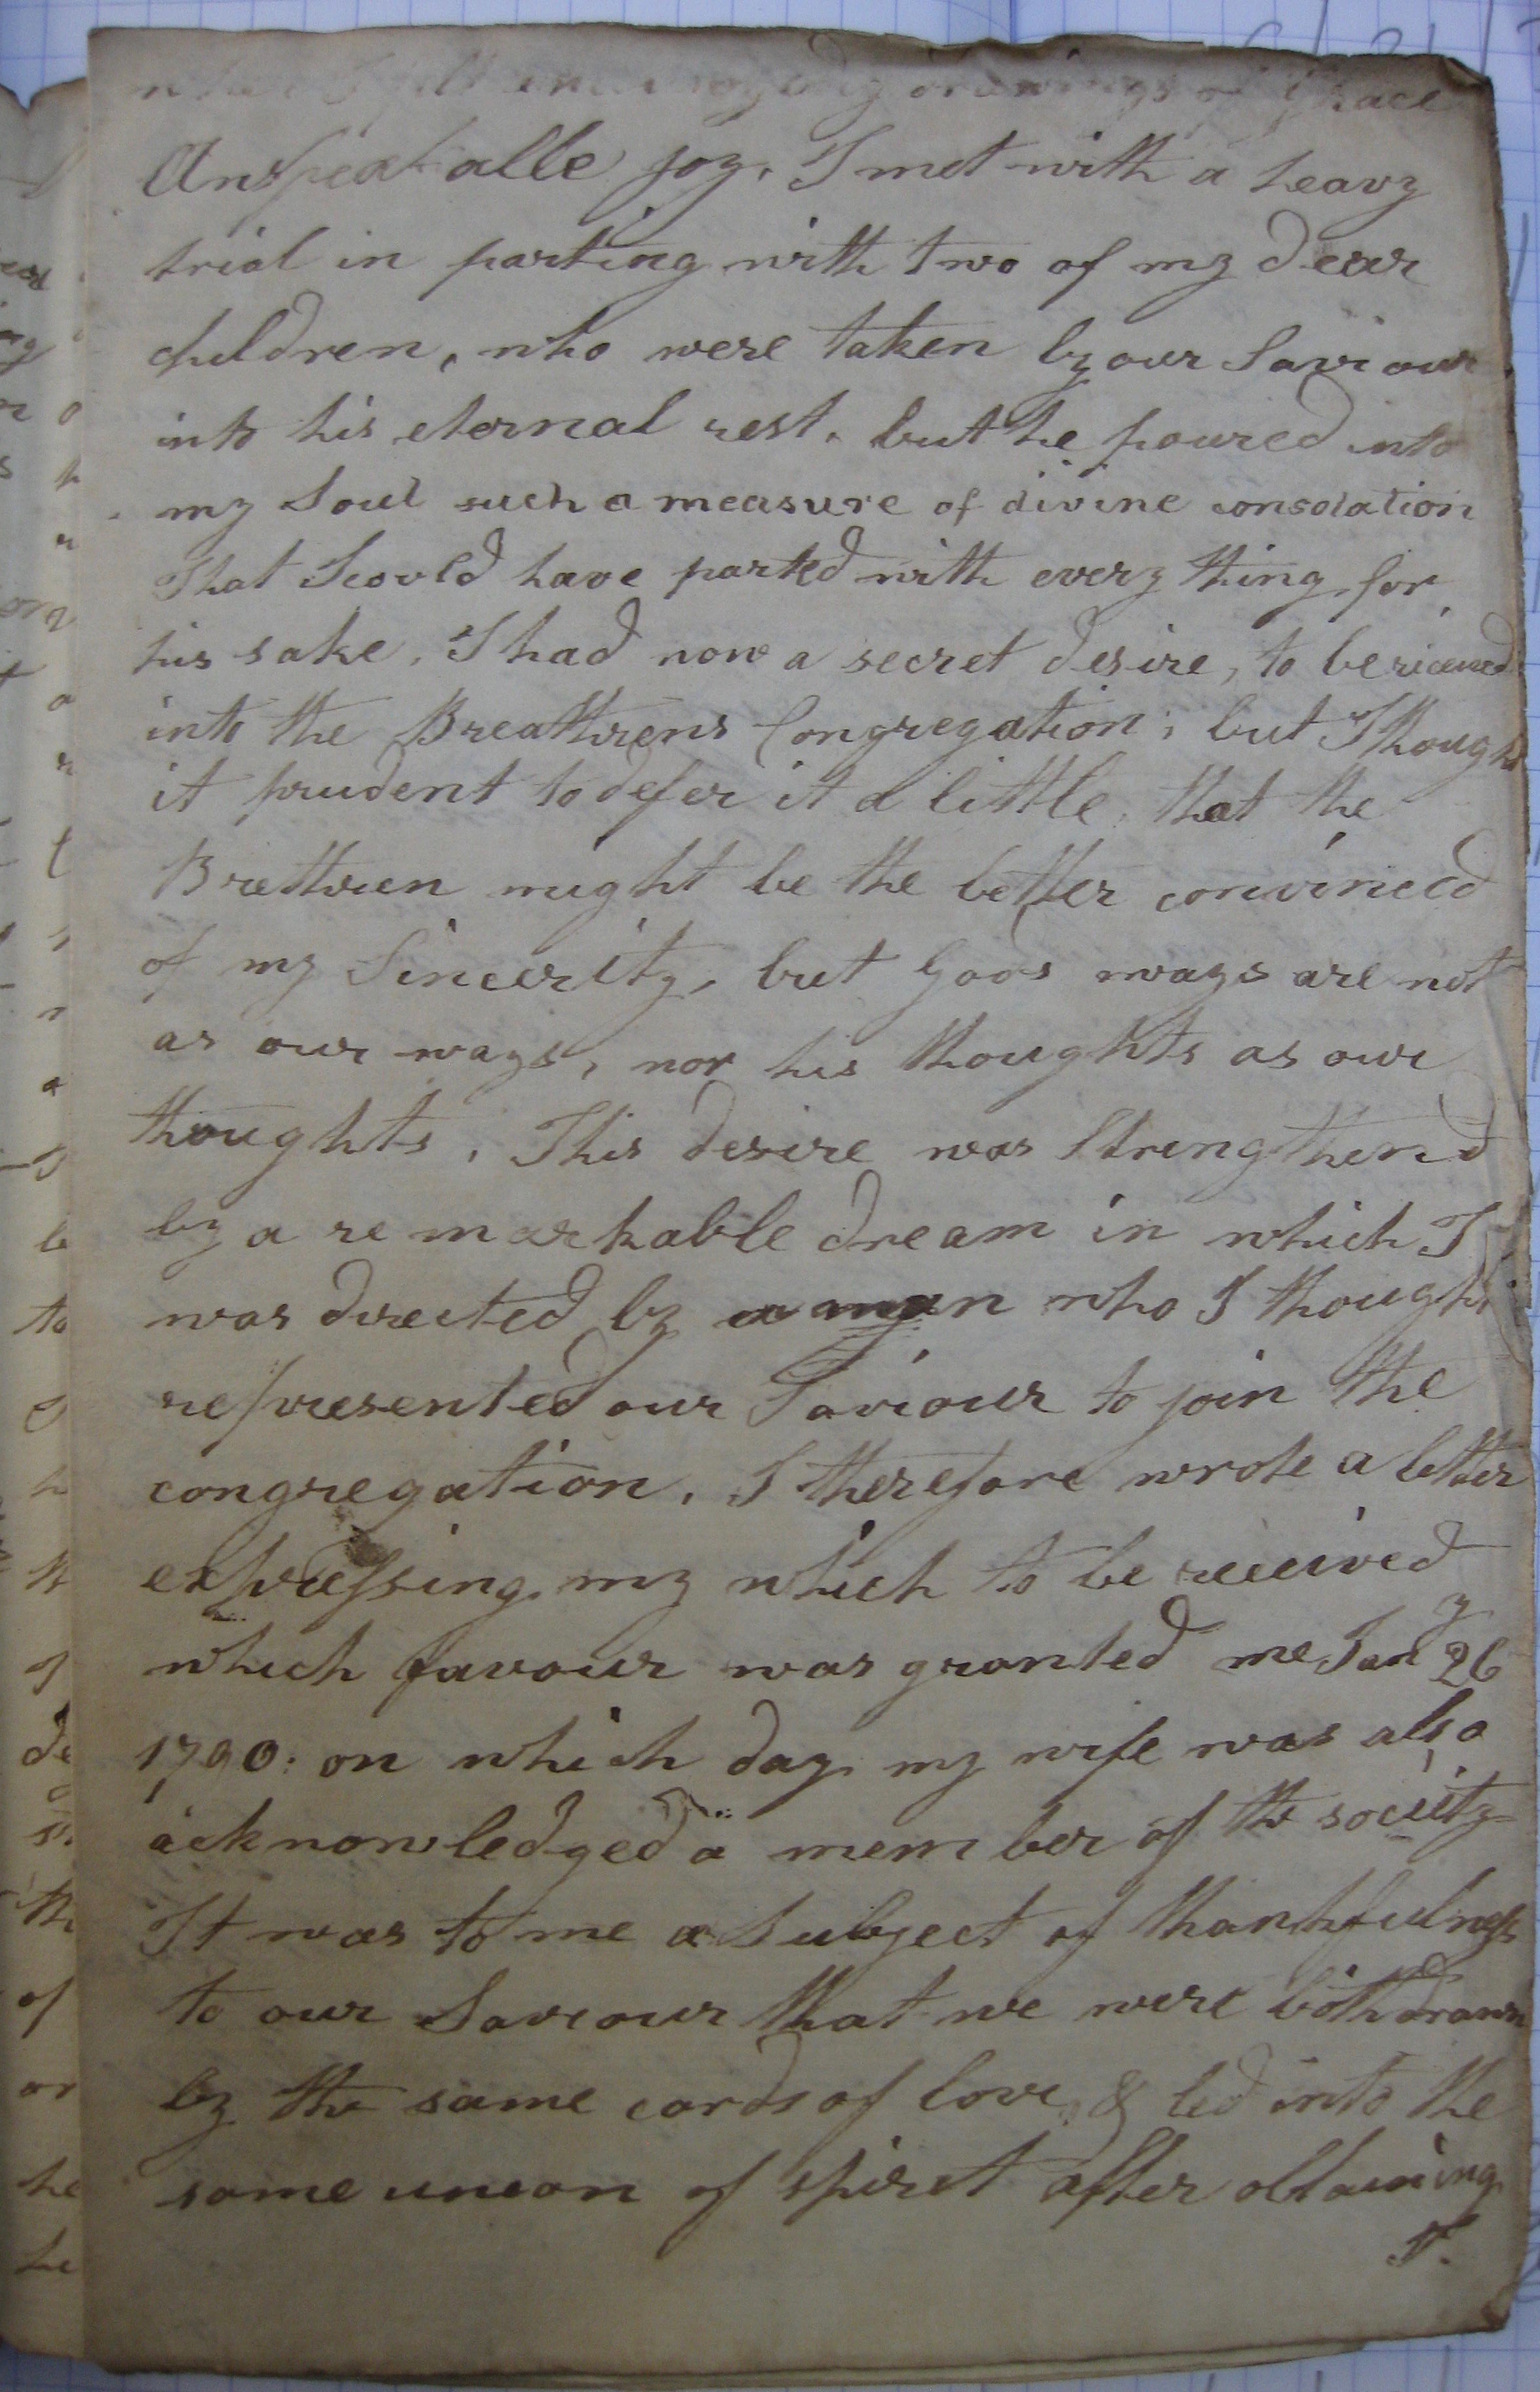 drawings of Grace
Unspeakable joy, I met with a heavy
trial in parting with two of my dear
children, who were taken by our Saviour
into his eternal rest, but he poured into
my Soul such a measure of divine consolation
That I could have parted with every thing for
his sake, I had now a secret desire, to be riceued
into the Breathrens Congregation; but I thought
it prudent to defer it a little, that the
Brethren might be the better convinced
of my Sincerity, but Gods ways are not
as our ways, nor his thoughts as our
thoughts, This desire was Strengthend
by a remarkable dream in which I
was directed by a man who I thought
represented our Saviour to join the
congregation, I therefore wrote a letter
expressing my which to be received
which favour was granted me Jany 26
1790: on which day my wife was also
acknowledged a member of the society
It was to me a Subject of thankfulness
to our Saviour that we were both drawn
by the same cords of love, & led into the
same union of spirit after obtaining